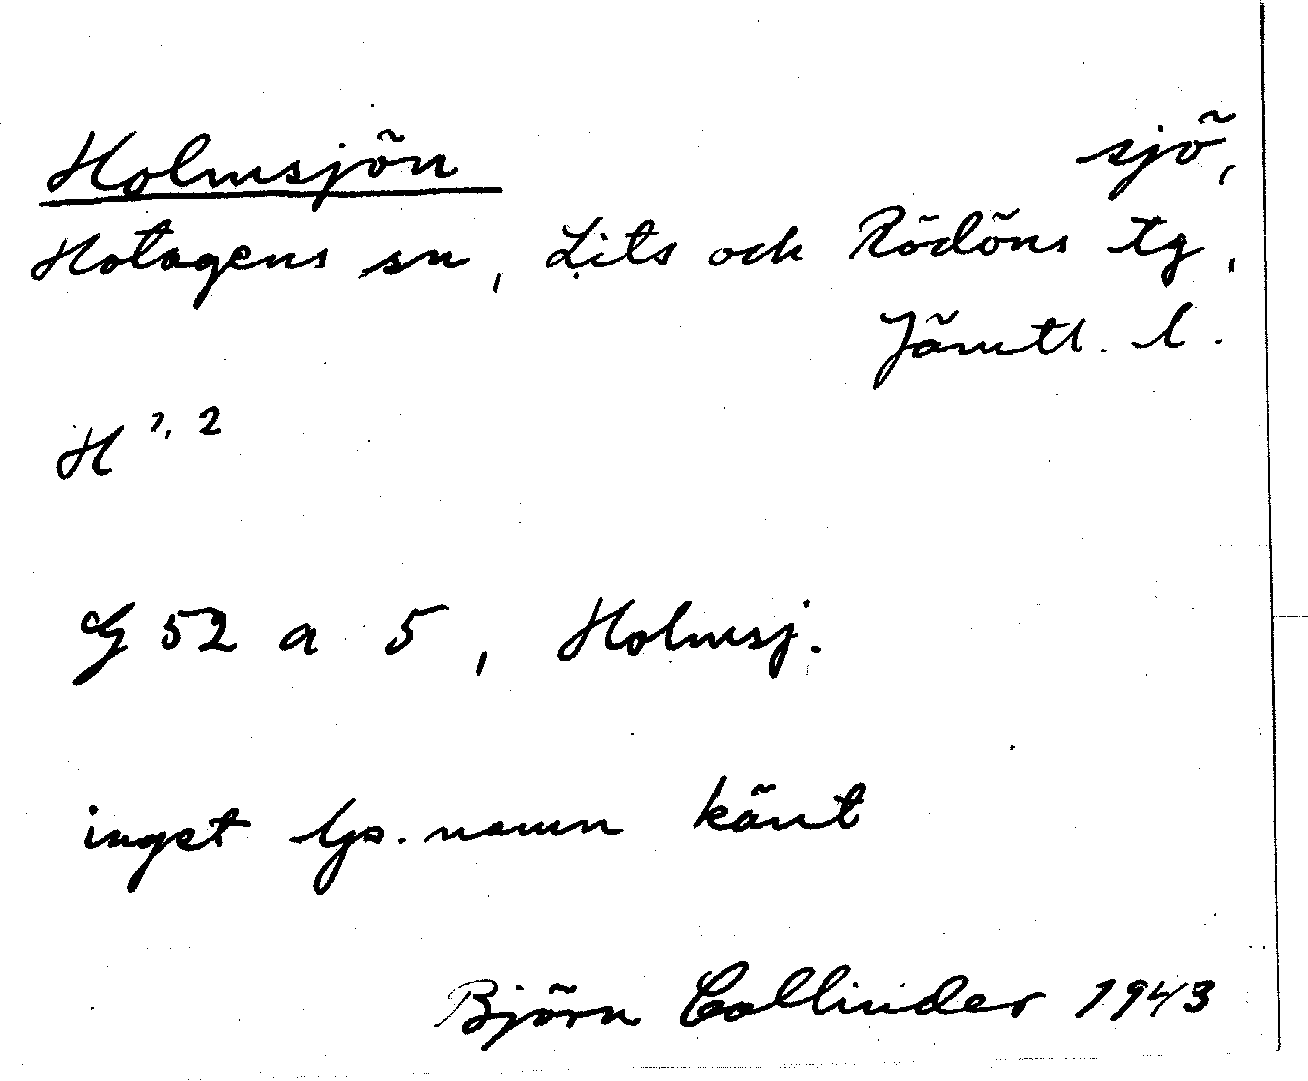 Holmsjön sjö,
Hotagens sn, Lits och Rödöns tg,
Jämtl. l.
H 1, 2
G 52 a 5, Holmsj.
inget lps. namn känt
Björn Collinder 1943